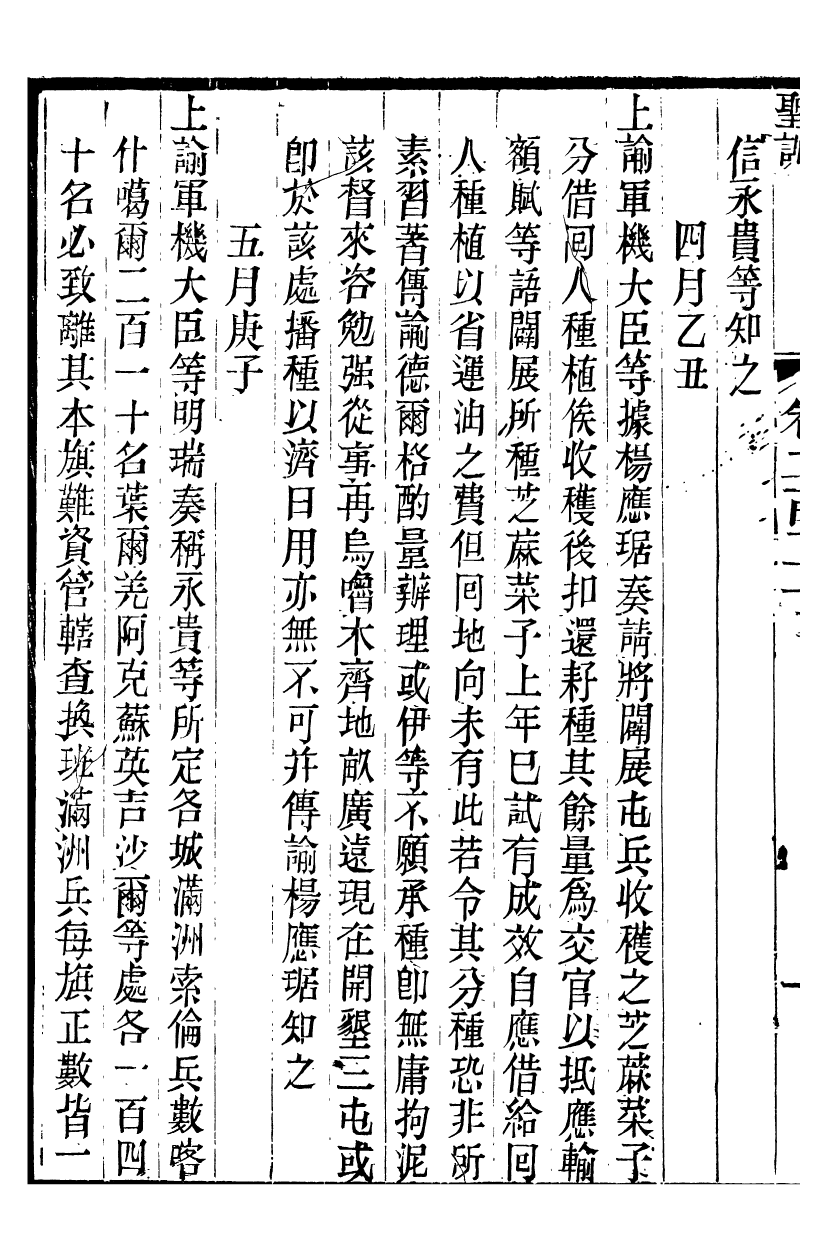 聖訓
信永貴等知之
四月乙丑
上諭軍機大臣等據楊應琚奏請將闢展屯兵收穫之芝蔴菜子
分借回人種植俟收穫後扣還耔種其餘量爲交官以抵應輸
額賦等語闢展所種芝蔴菜子上年巳試有成效自應借給回
人種植以省運油之費但回地向未有此若令其分種恐非所
素習著傳諭德爾格酌量辦理或伊等不願承種卽無庸拘泥
該督來咨勉强從事再烏嚕木齊地畝廣遠現在開墾三屯或
卽於該處播種以濟日用亦無不可幷傳諭楊應琚知之
五月庚子
上諭軍機大臣等明瑞奏稱永貴等所定各城滿洲索倫兵數喀
什噶爾二百一十名葉爾羌阿克蘇英吉沙爾等處各一百四
十名必致離其本旗難資管轄查換班滿洲兵每旗正數皆一